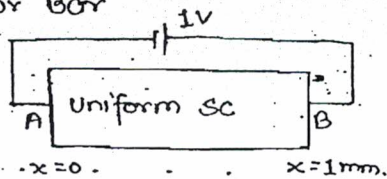 1V
A uniform SC B
x=0. x=1mm.